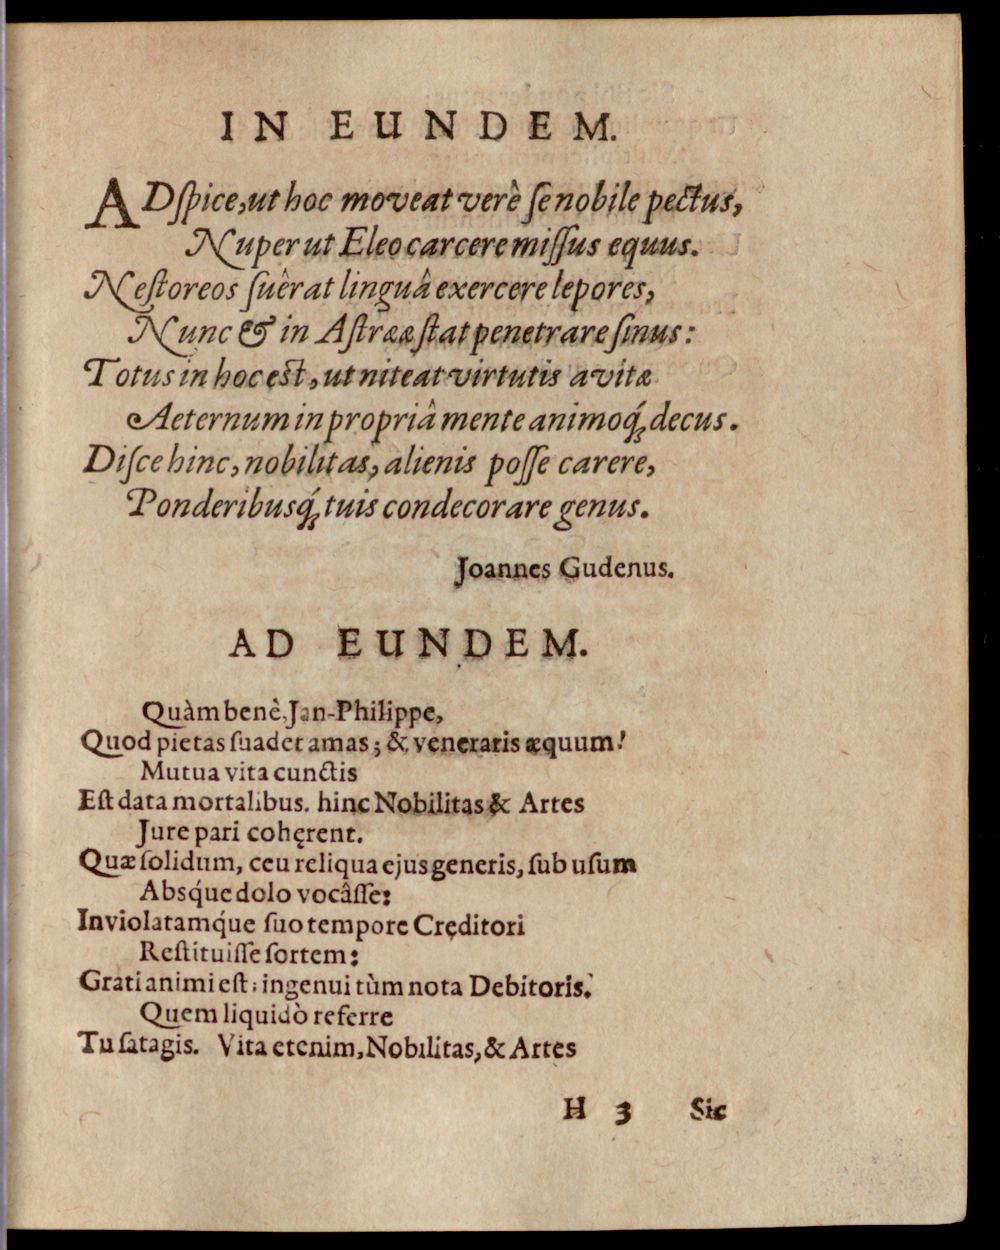 IN EUNDEM.
ADſpice, ut hoc moveat verè ſe nobile pectus,
Nuper ut Eleo carcere miſſus equus.
Neſtoreos ſuêrat linguâ exercere lepores,
Nunc & in Aſtrææ ſtat penetrare ſinus:
Totus in hoc eſt, ut niteat virtutis avitæ
Aeternum in propriâ mente animoq́; decus.
Diſce hinc, nobilitas, alienis poſſe carere,
Ponderibusq́; tuis condecorare genus.
Joannes Gudenus.
AD EUNDEM.
Quàm benè, Jan-Philippe,
Quod pietas ſuadet amas; & veneraris æquum!
Mutua vita cunctis
Eſt data mortalibus. hinc Nobilitas & Artes
Jure pari cohęrent.
Quæ ſolidum, ceu reliqua ejus generis, ſub uſum
Absq́ue dolo vocâſſe:
Inviolatamq́ue ſuo tempore Cręditori
Reſtituiſſe ſortem:
Grati animi eſt: ingenui tùm nota Debitoris.
Quem liquidò referre
Tu ſatagis. Vita etenim, Nobilitas, & Artes
H 3 Sic